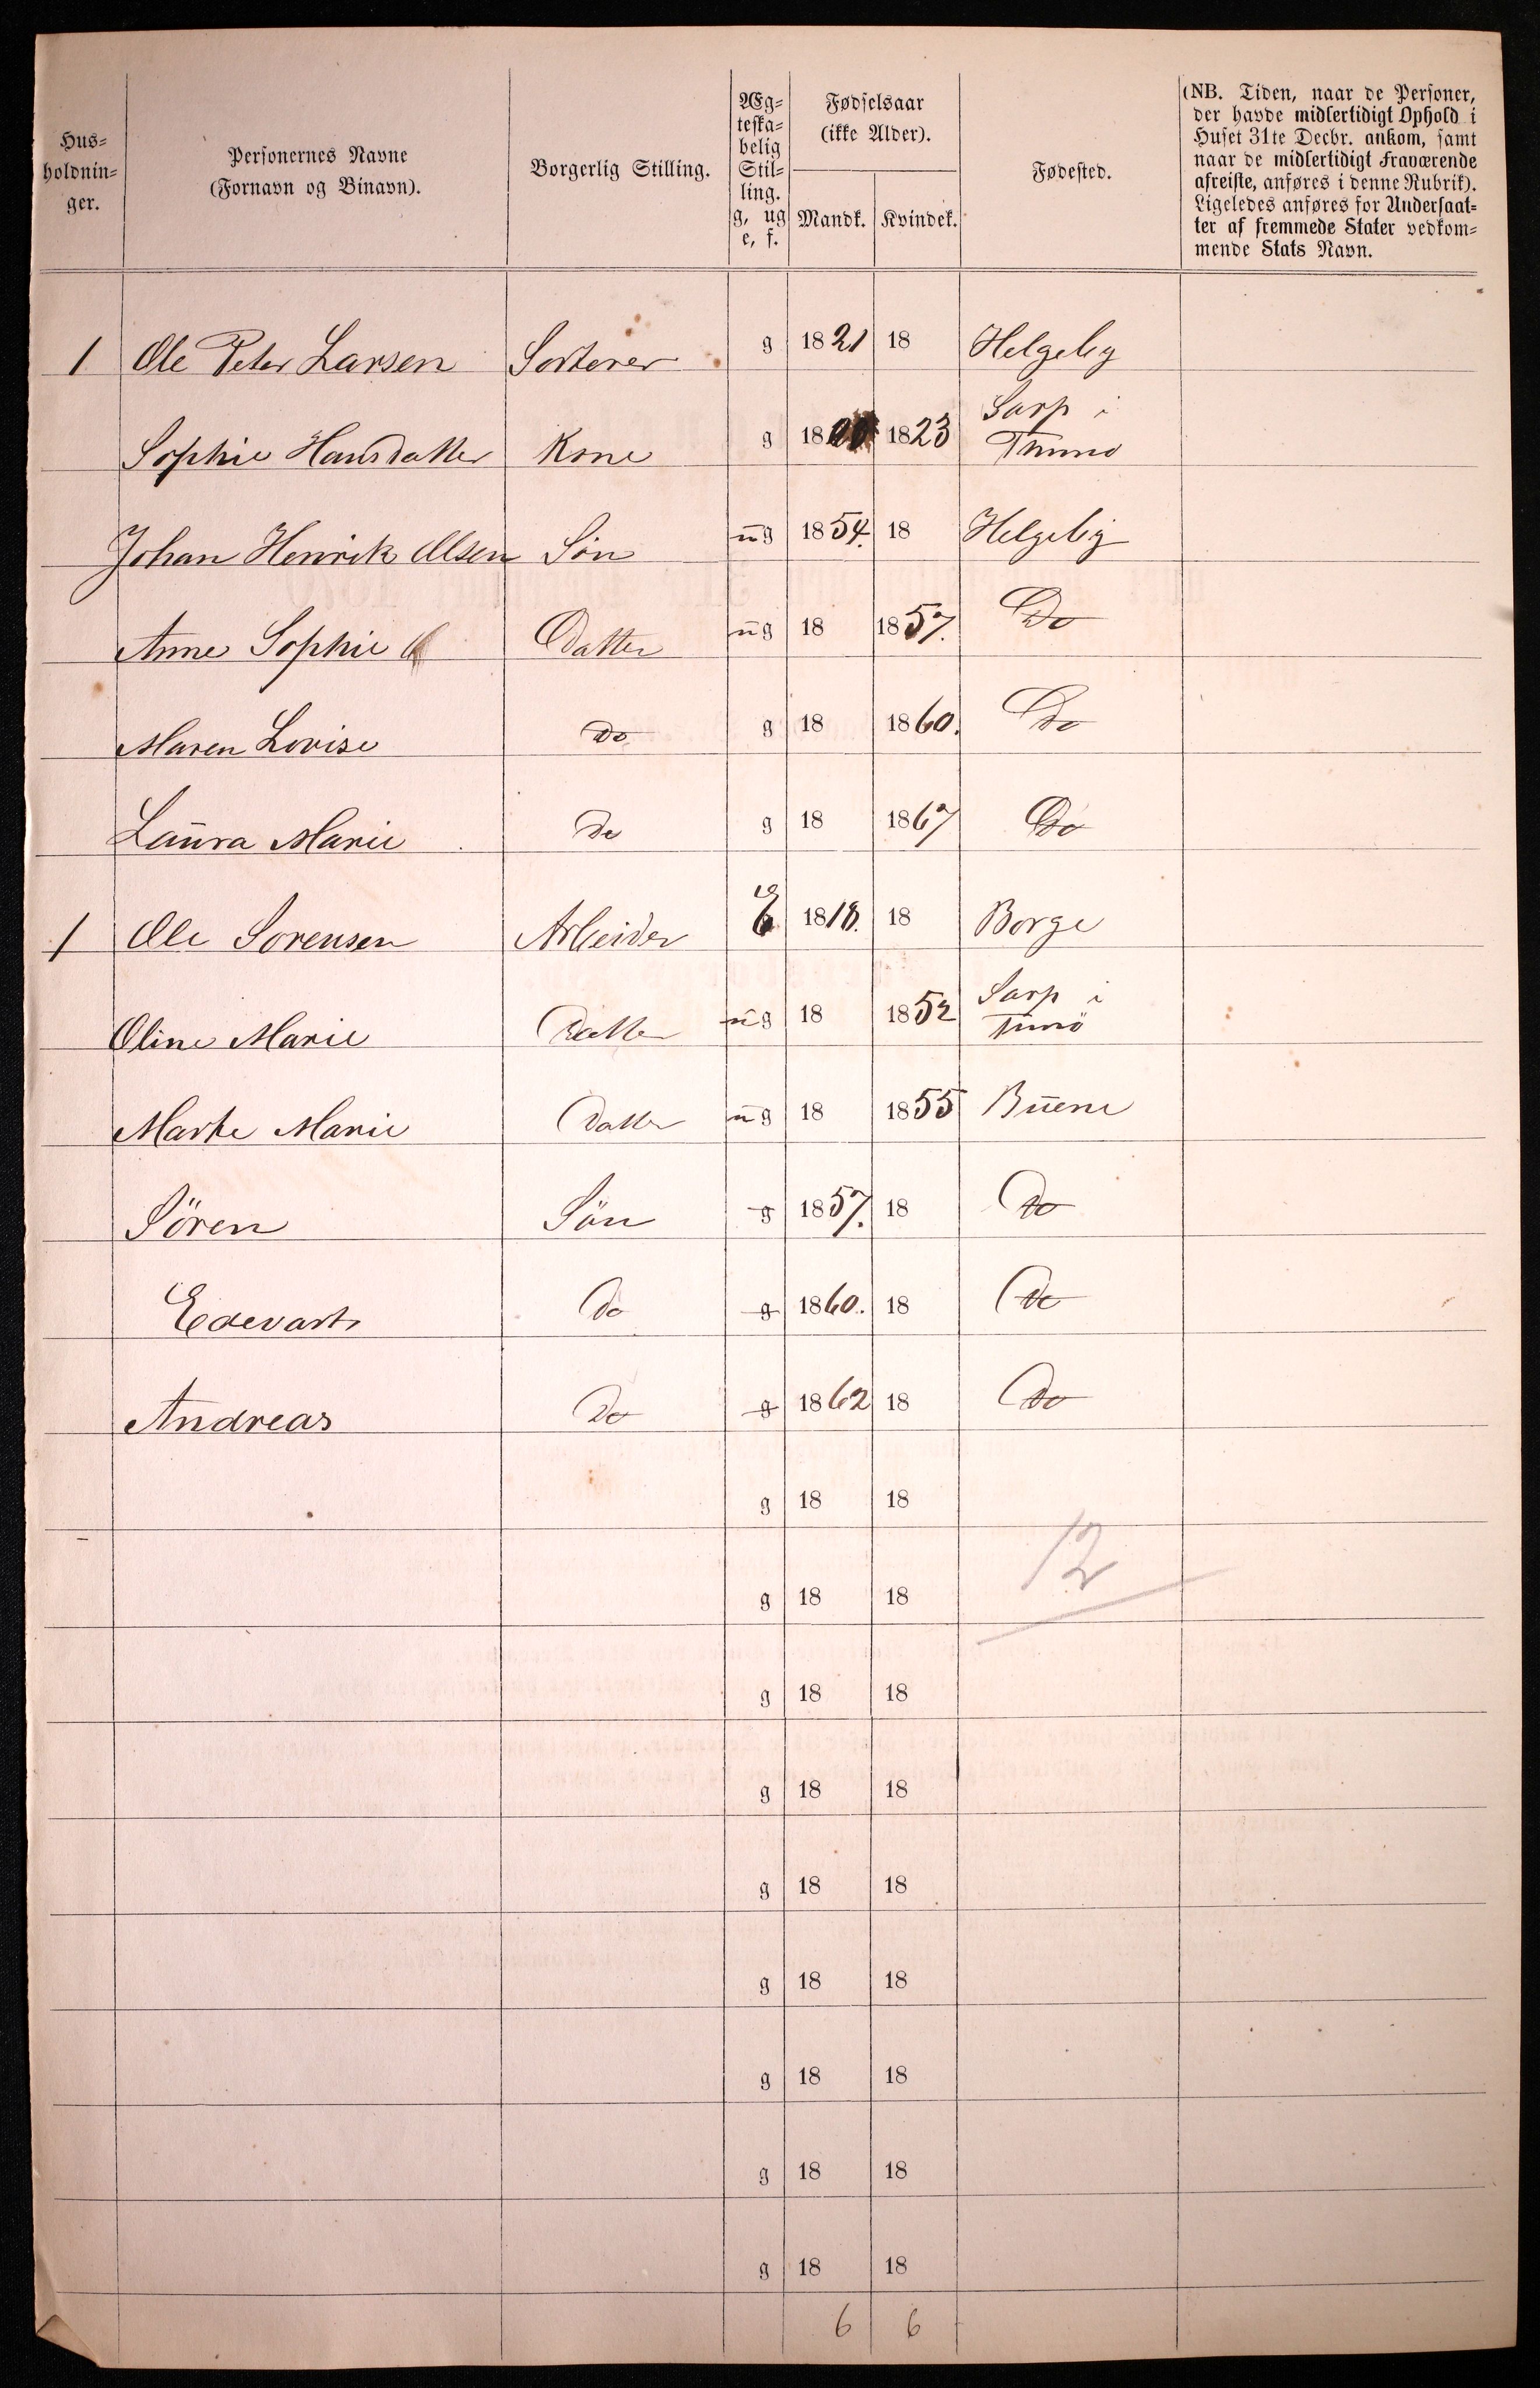 Hus-
holdnin-
ger.
Personernes Navne
(Fornavn og Binavn).
Borgerlig Stilling.
Æg-
teska-
belig
Stil-
ling.
g, ug
e, f.
Fødselsaar
(ikke Alder).
Mandk. Kvindek.
Fødested.
(NB. Tiden, naar de Personer,
der havde midlertidigt Ophold i
Huset 31te Decbr. ankom, samt
naar de midlertidigt Fraværende
afreiste, anføres i denne Rubrik).
Ligeledes anføres for Undersaat-
ter af fremmede Stater vedkom-
mende Stats Navn.
1 Ole Peter Larsen Sorterer g 1821 18 Helgeby
Sophie Hansdatter Kone g 18 1823 Sarp i
Thunø
Johan Henrik Olsen Søn ug 1854. 18 Helgeby
Anne Sophie Datter ug 18 1857. Do
Maren Lovise Do g 18 1860. Do
Laura Marie Do g 18 1867 Do
1 Ole Sorensen Arbeider E 1818. 18 Borge
Oline Marie Datter ug 18 1852 Sarp i
Tunö
Marte Marie Datter ug 18 1855 Buene
Sören Sön g 1857. 18 Do
Edevart Do g 1860. 18 Do
Andreas Do g 1862 18 Do
g 18 18
12
g 18 18
g 18 18
g 18 18
g 18 18
g 18 18
g 18 18
g 18 18
g 18 18
6 6